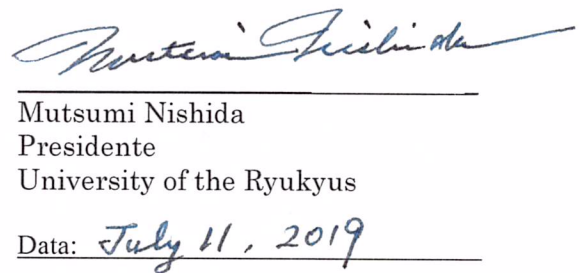 Mutsumi Nishida
Mutsumi Nishida
Presidente
University of the Ryukyus
Data: July 11, 2019